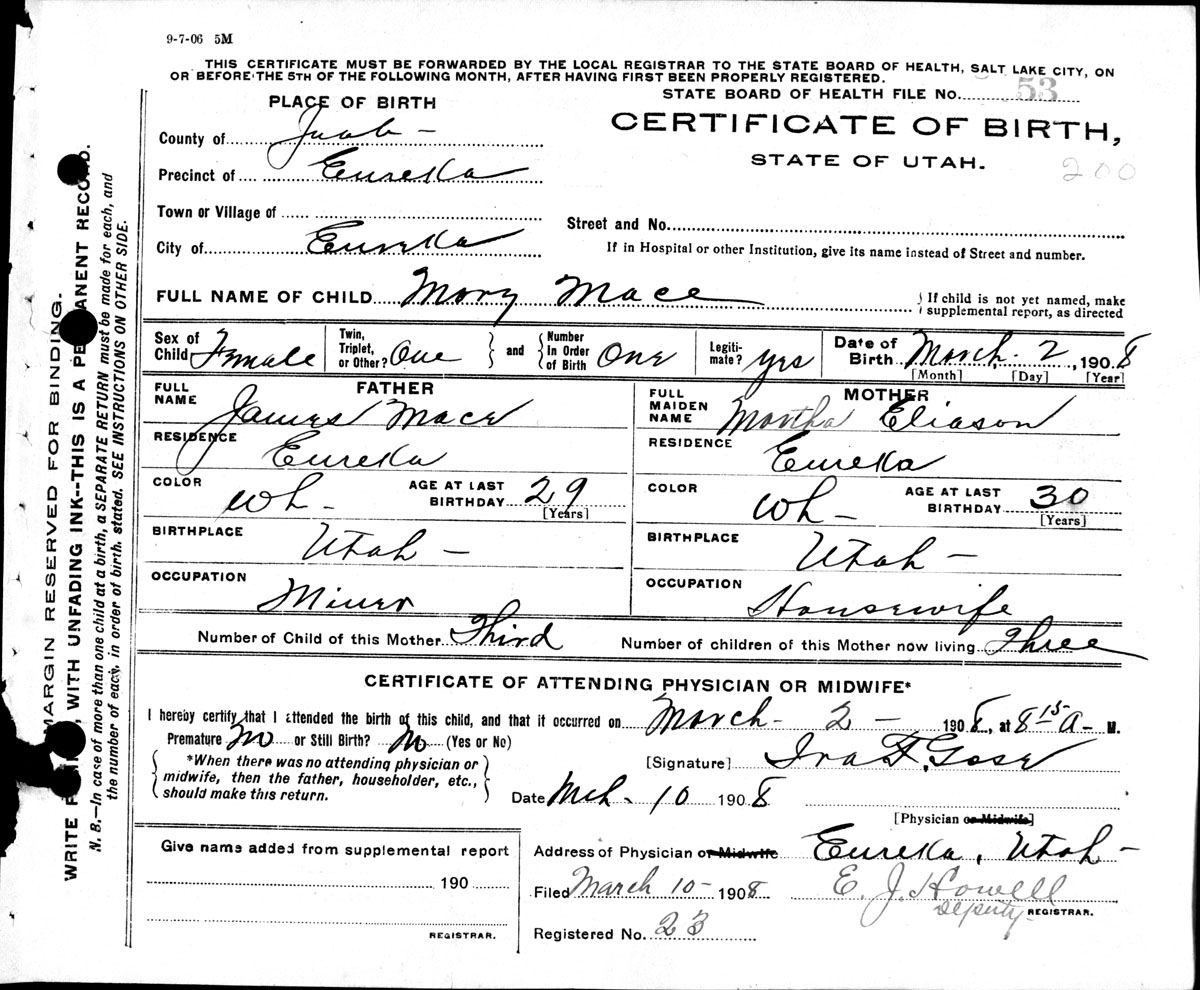 9-7-06 5M
THIS CERTIFICATE MUST BE FORWARDED BY THE LOCAL REGISTRAR TO THE STATE BOARD OF HEALTH, SALT LAKE CITY, ON
OR BEFORE THE 5TH OF THE FOLLOWING MONTH, AFTER HAVING FIRST BEEN PROPERLY REGISTERED.
STATE BOARD OF HEALTH FILE No. 53
PLACE OF BIRTH
CERTIFICATE OF BIRTH,
STATE OF UTAH.
200
County of Juab -
Precinct of Eureka
Town or Village of
Street and No.
City of Eureka
If in Hospital or other Institution, give its name instead of Street and number.
FULL NAME OF CHILD Mary Mace
If child is not yet named, make
supplemental report, as directed
Sex of Child Female
Twin, Triplet, or Other? One
and
Number In Order of Birth One
Legiti-mate? Yes
Date of Birth March - 2, 1908
[Month] [Day] [Year]
FATHER
FULL NAME James Mace
RESIDENCE Eureka
COLOR Wh -
AGE AT LAST BIRTHDAY 29
[Years]
BIRTHPLACE Utah -
OCCUPATION Miner
MOTHER
FULL MAIDEN NAME Martha Eliason
RESIDENCE Eureka
COLOR Wh -
AGE AT LAST BIRTHDAY 30
[Years]
BIRTHPLACE Utah -
OCCUPATION Housewife
Number of Child of this Mother Third
Number of children of this Mother now living Three
CERTIFICATE OF ATTENDING PHYSICIAN OR MIDWIFE*
I hereby certify that I attended the birth of this child, and that it occurred on March - 2 - 1908, at 8 15 A - M.
Premature No or Still Birth? No (Yes or No)
*When there was no attending physician or
midwife, then the father, householder, etc.,
should make this return.
[Signature] Ira F. Gose
Date Mch - 10 1908
[Physician or Midwife]
Address of Physician or Midwife Eureka, Utah -
Give name added from supplemental report
190
REGISTRAR.
Filed March 10 - 1908
E. J. Howell
Deputy REGISTRAR.
Registered No. 23
MARGIN RESERVED FOR BINDING.
WRITE , WITH UNFADING INK--THIS IS A PE ANENT RECORD.
N. B.—In case of more than one child at a birth, a SEPARATE RETURN must be made for each, and
the number of each, in order of birth, stated. SEE INSTRUCTIONS ON OTHER SIDE.